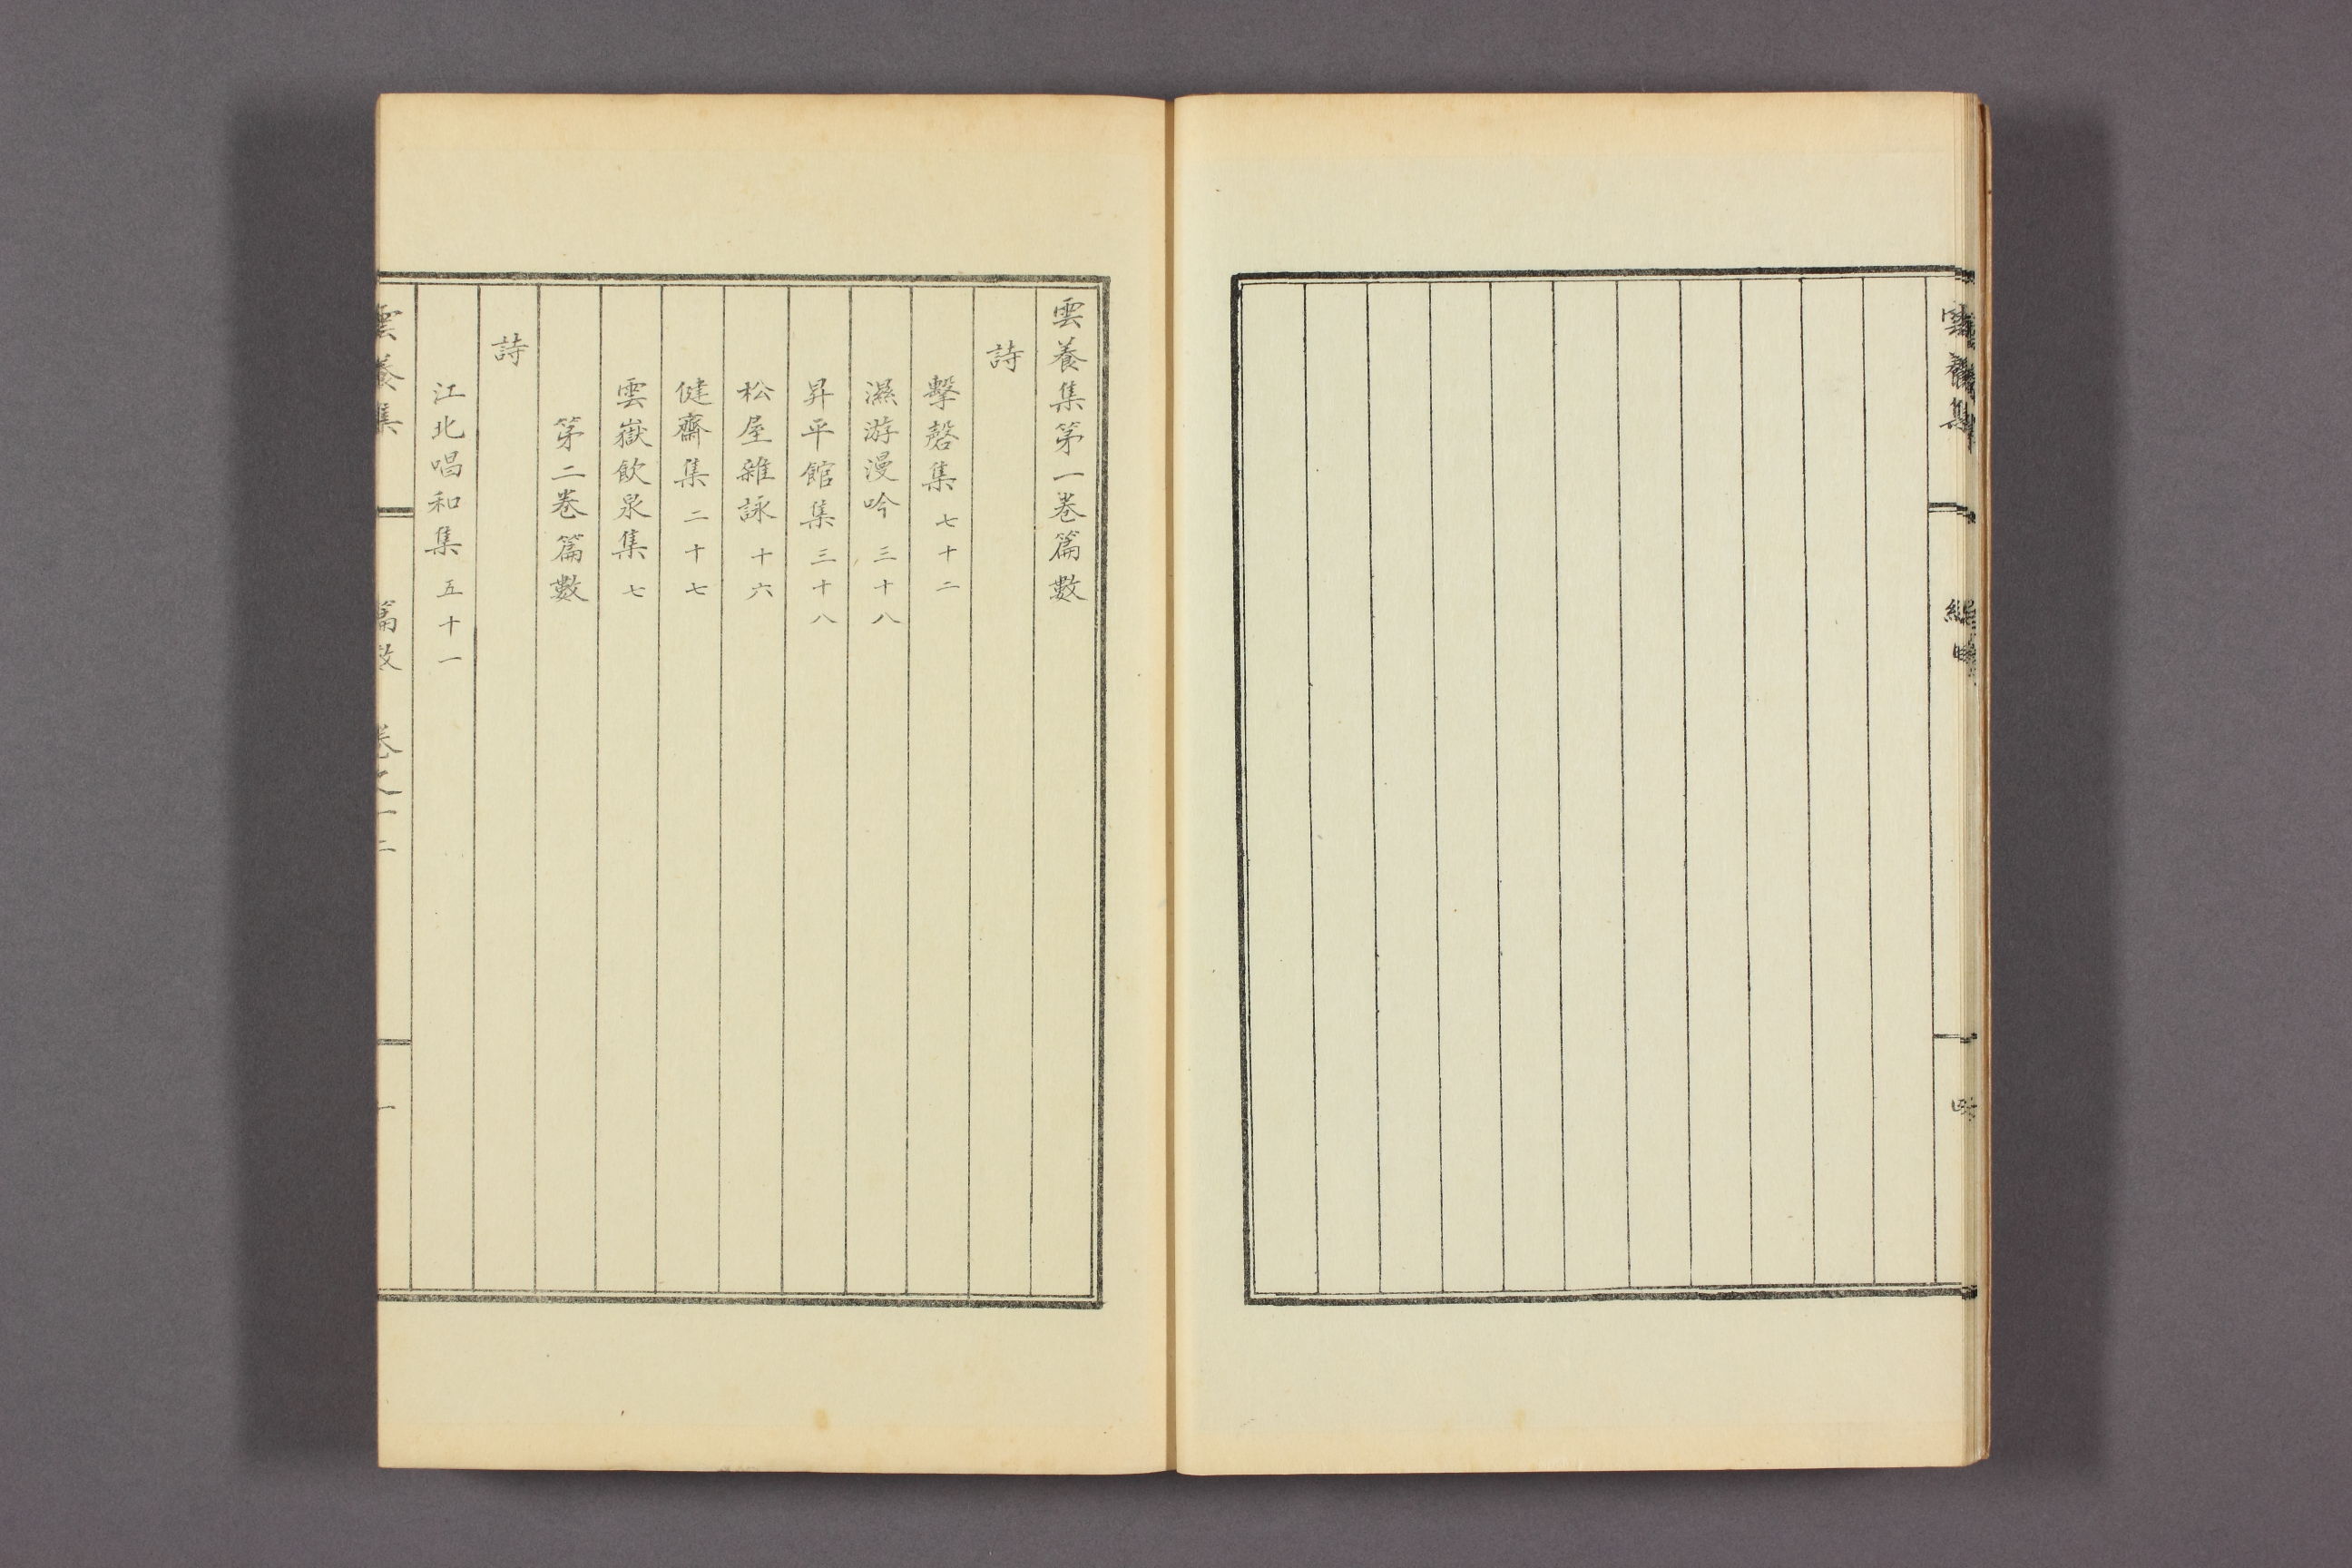 雲養集
雲養集第一卷篇數
詩
擊磬集 七十二
濕游漫吟 三十八
昇平館集 三十八
松屋雜詠 十六
健齋集 二十七
雲嶽飲泉集 七
第二卷篇數
詩
江北唱和集 五十一
雲養集 篇數 卷之一二 一